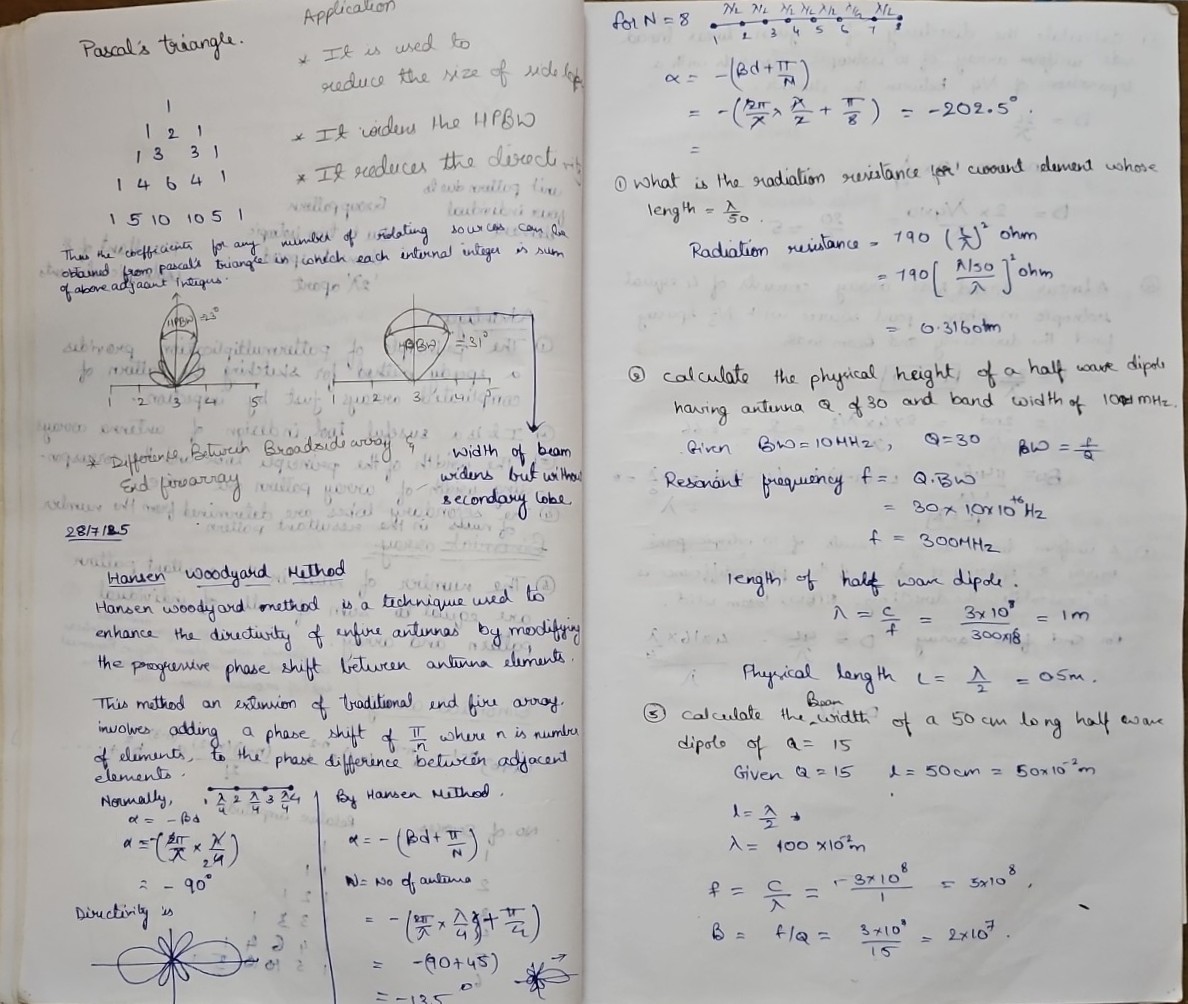 Pascal's triangle.
1
1 2 1
1 3 3 1
1 4 6 4 1
1 5 10 10 5 1
Application
* It is used to
reduce the size of side lobe
* It widens the HPBW
* It reduces the directi
Thus the coefficients for any number of radiating sources can be
obtained from pascal's triangle in which each internal integer is sum
of above adjacent integers.
HPBW =23°
1 2 3 4 5
HPBW =31°
1 2 3 4 5
width of beam
widens but withou
secondary lobe
* Difference Between Broadside array &
End fire array
28/7/25
Hansen Woodyard Method
Hansen woodyard method is a technique used to
enhance the directivity of enfire antennas by modifying
the progressive phase shift between antenna elements.
This method an extension of traditional end fire array,
involves adding a phase shift of π/n where n is number
of elements, to the phase difference between adjacent
elements.
Normally,
1 λ/4 2 λ/4 3 λ/4 4
α = -βd
α = -(2π/λ × λ/4)
= -90°
Directivity is
By Hansen Method.
α = -(βd + π/N)
N = No of antenna
= -(2π/λ × λ/4 + π/4)
= -(90+45)
= -135°
for N = 8
λ/2 λ/2 λ/2 λ/2 λ/2 λ/2 λ/2
1 2 3 4 5 6 7 8
α = -(βd + π/N)
= -(2π/λ × λ/2 + π/8) = -202.5°.
=
① What is the radiation resistance for current element whose
length = λ/50.
Radiation resistance = 790 (L/λ)² ohm
= 790 [λ/50 / λ]² ohm
= 0.316ohm
② Calculate the physical height of a half wave dipole
having antenna Q of 30 and band width of 10 MHz.
Given BW = 10MHz, Q=30 BW = f/Q
Resonant frequency f = Q.BW
= 30 × 10×10⁺⁶ Hz
f = 300MHz
length of half wave dipole.
λ = c/f = 3×10⁸ / 300×10⁶ = 1m
Physical length L = λ/2 = 0.5m.
③ Calculate the Beam width of a 50 cm long half wave
dipole of Q = 15
Given Q = 15 l = 50cm = 50×10⁻²m
l = λ/2
λ = 100 ×10⁻²m
f = c/λ = 3×10⁸ / 1 = 3×10⁸.
B = f/Q = 3×10⁸ / 15 = 2×10⁷.